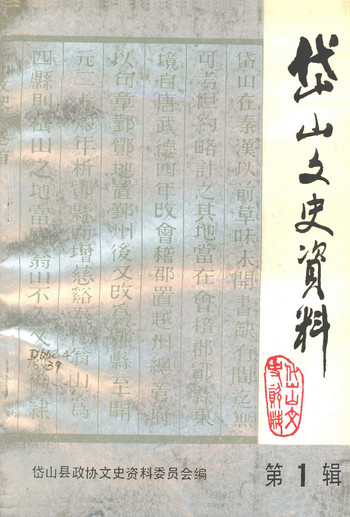 岱山文史資料
岱山在秦漢以前草昧未開書缺有間迄無
可考但約略計之其地當在會稽鄞東
境自唐武德四年改會稽郡置越州總管府
以句章鄞鄮地置鄞州後又改為鄮縣至開
元二十年析鄮縣增慈谿翁山為
四縣則岱山之地當翁山不久又隸
39
岱山文
岱山县政协文史资料委员会编
第1辑